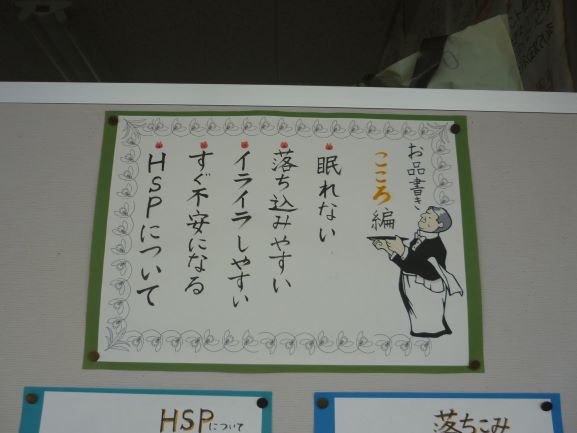 お品書き
こころ編
眠れない
落ち込みやすい
イライラしやすい
すぐ不安になる
HSPについて
HSPについて
落ちこみ